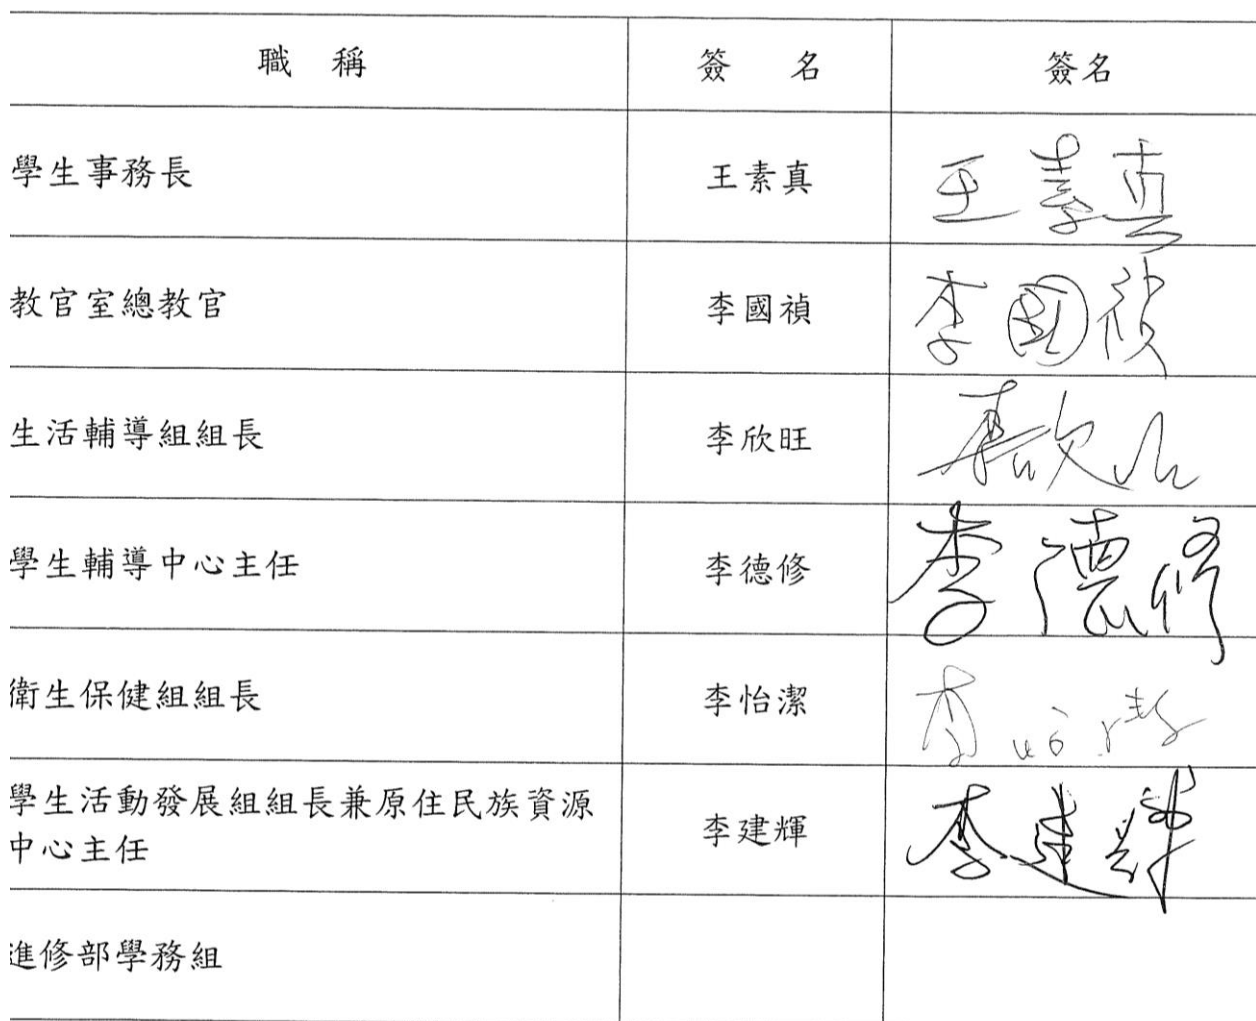 職 稱 簽 名 簽名
學生事務長 王素真 王素真
教官室總教官 李國禎 李國禎
生活輔導組組長 李欣旺
學生輔導中心主任 李德修 李德修
衛生保健組組長 李怡潔 李怡潔
學生活動發展組組長兼原住民族資源
中心主任 李建輝 李建輝
進修部學務組